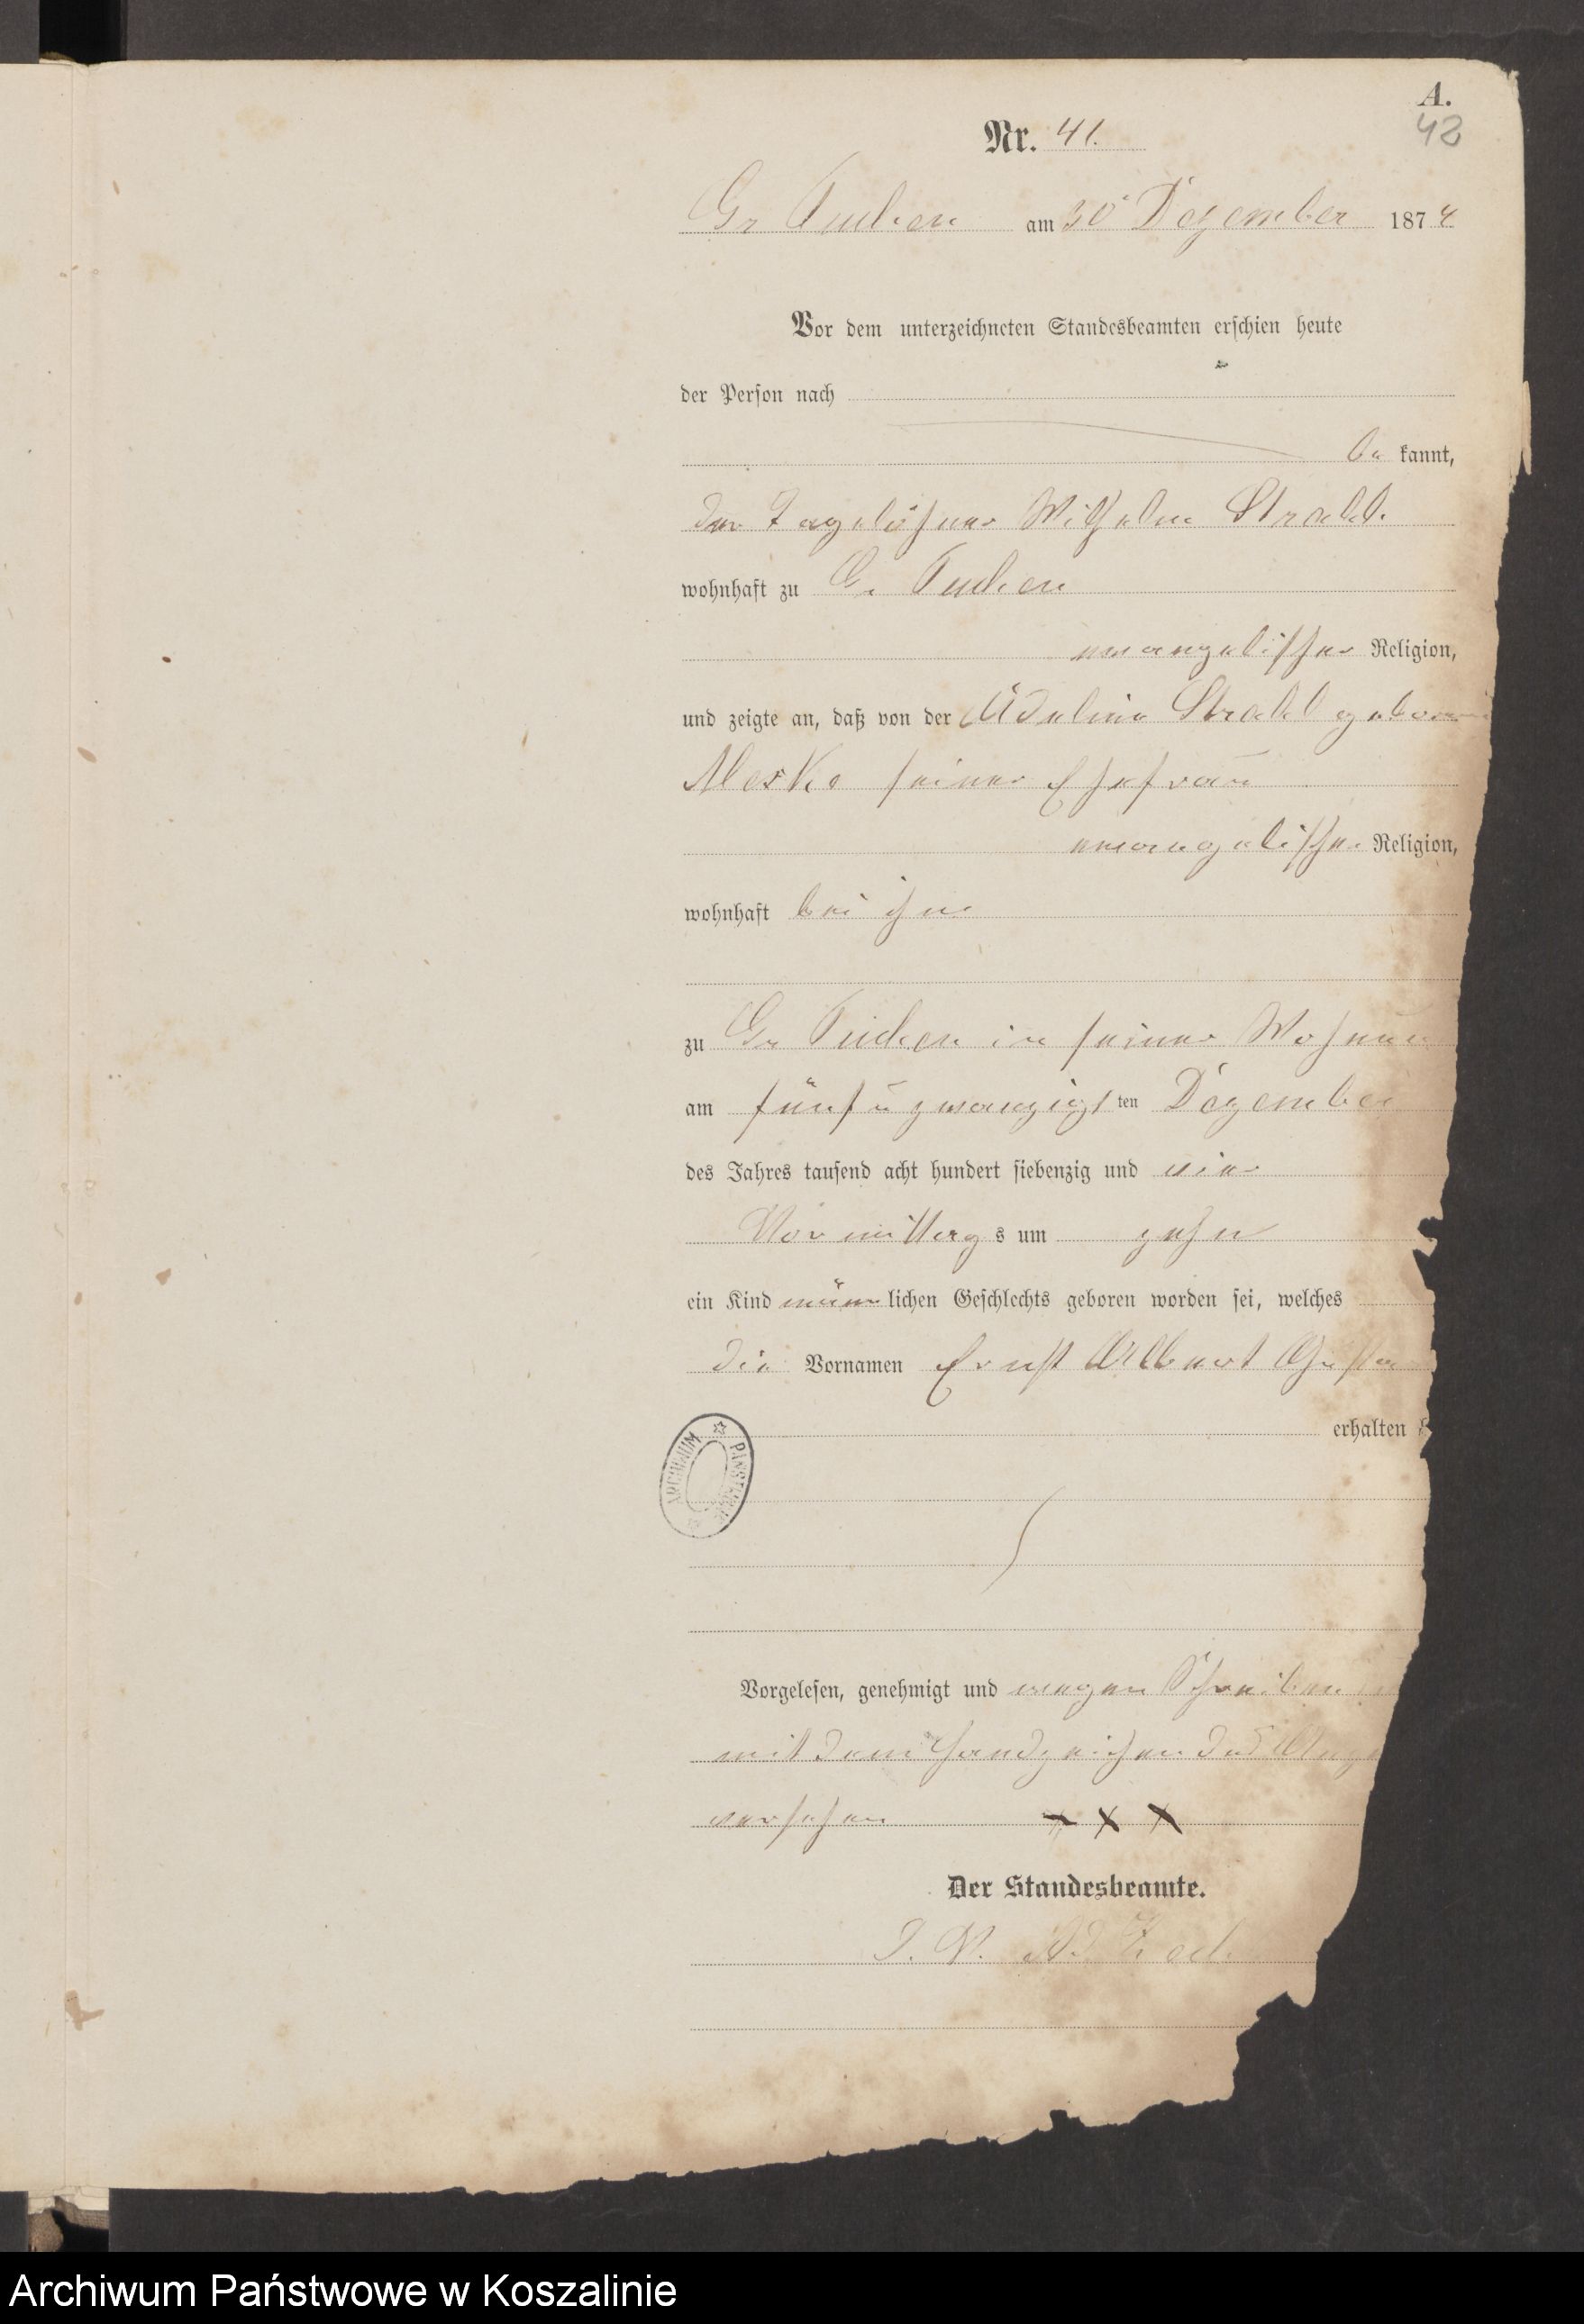 A.
42
Nr. 41.
Gr Tuchen am 30 Dezember 1874
Vor dem unterzeichneten Standesbeamten erschien heute
der Person nach
be kannt,
der Tagelöhner Wilhelm
wohnhaft zu Gr Tuchen
evangelischer Religion,
und zeigte an, daß von der geboren
seiner Ehefrau
evangelischer Religion,
wohnhaft bei ihm
zu Gr Tuchen in seiner Wohnun
am fünf u zwanzigs ten Dezember
des Jahres tausend acht hundert siebenzig und vier
Vormittag s um zehn
ein Kind männ lichen Geschlechts geboren worden sei, welches
die Vornamen Ernst Albert Gusta
erhalten
ARCHIWUM PAŃSTWOWE
Vorgelesen, genehmigt und wegen Schreiben
mit dem Handzeichen des Anze
versehen xxx
Der Standesbeamte.
J. V.
Archiwum Państwowe w Koszalinie